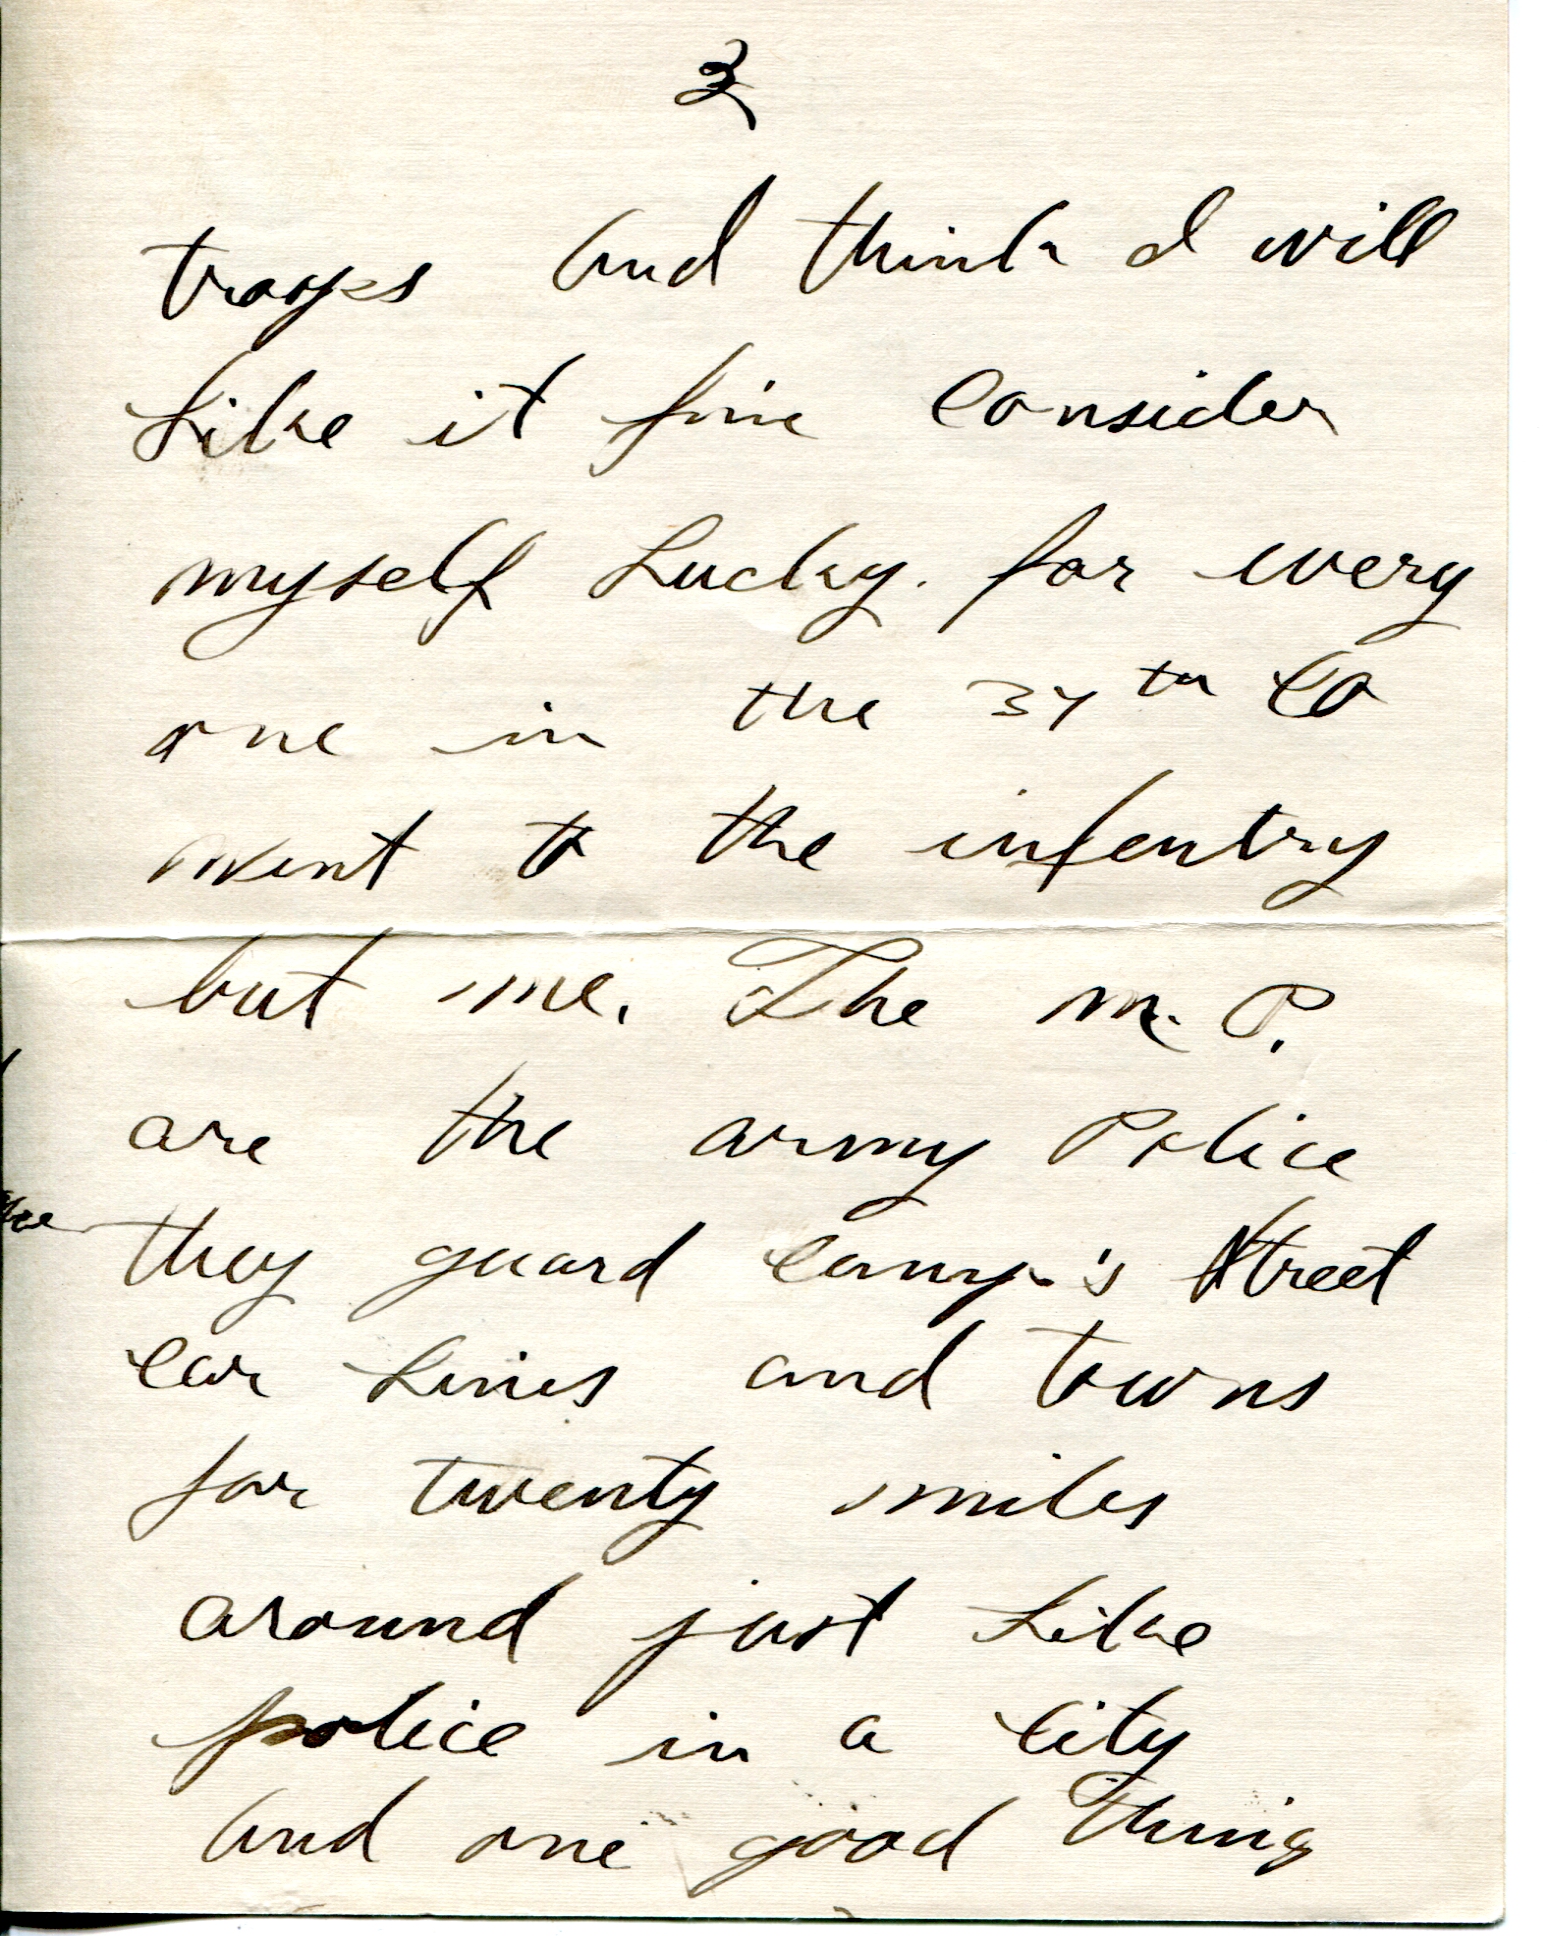 3
troops and think I will
Like it fine Consider
myself Lucky. for every
one in the 34th Co
went to the infentry
but me. The M. P.
are the army Police
they guard Camp's Street
Car Lines and towns
for twenty miles
around just Like
police in a City
and one good thing